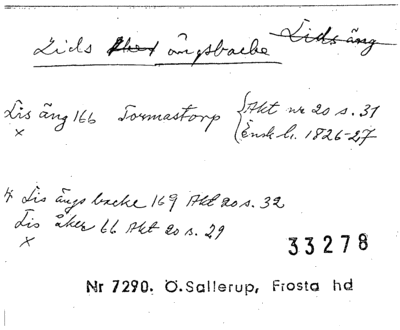 Lids ängsbacke Lids äng
Lis äng 166 Tormastorp { Akt nr 20 s. 31
x Ensk h. 1826-27
Lis ängs backe 169 Akt 20 s. 32
Lis åker 66 Akt 20 s. 29
x
33278
Nr 7290. Ö.Sallerup, Frosta hd